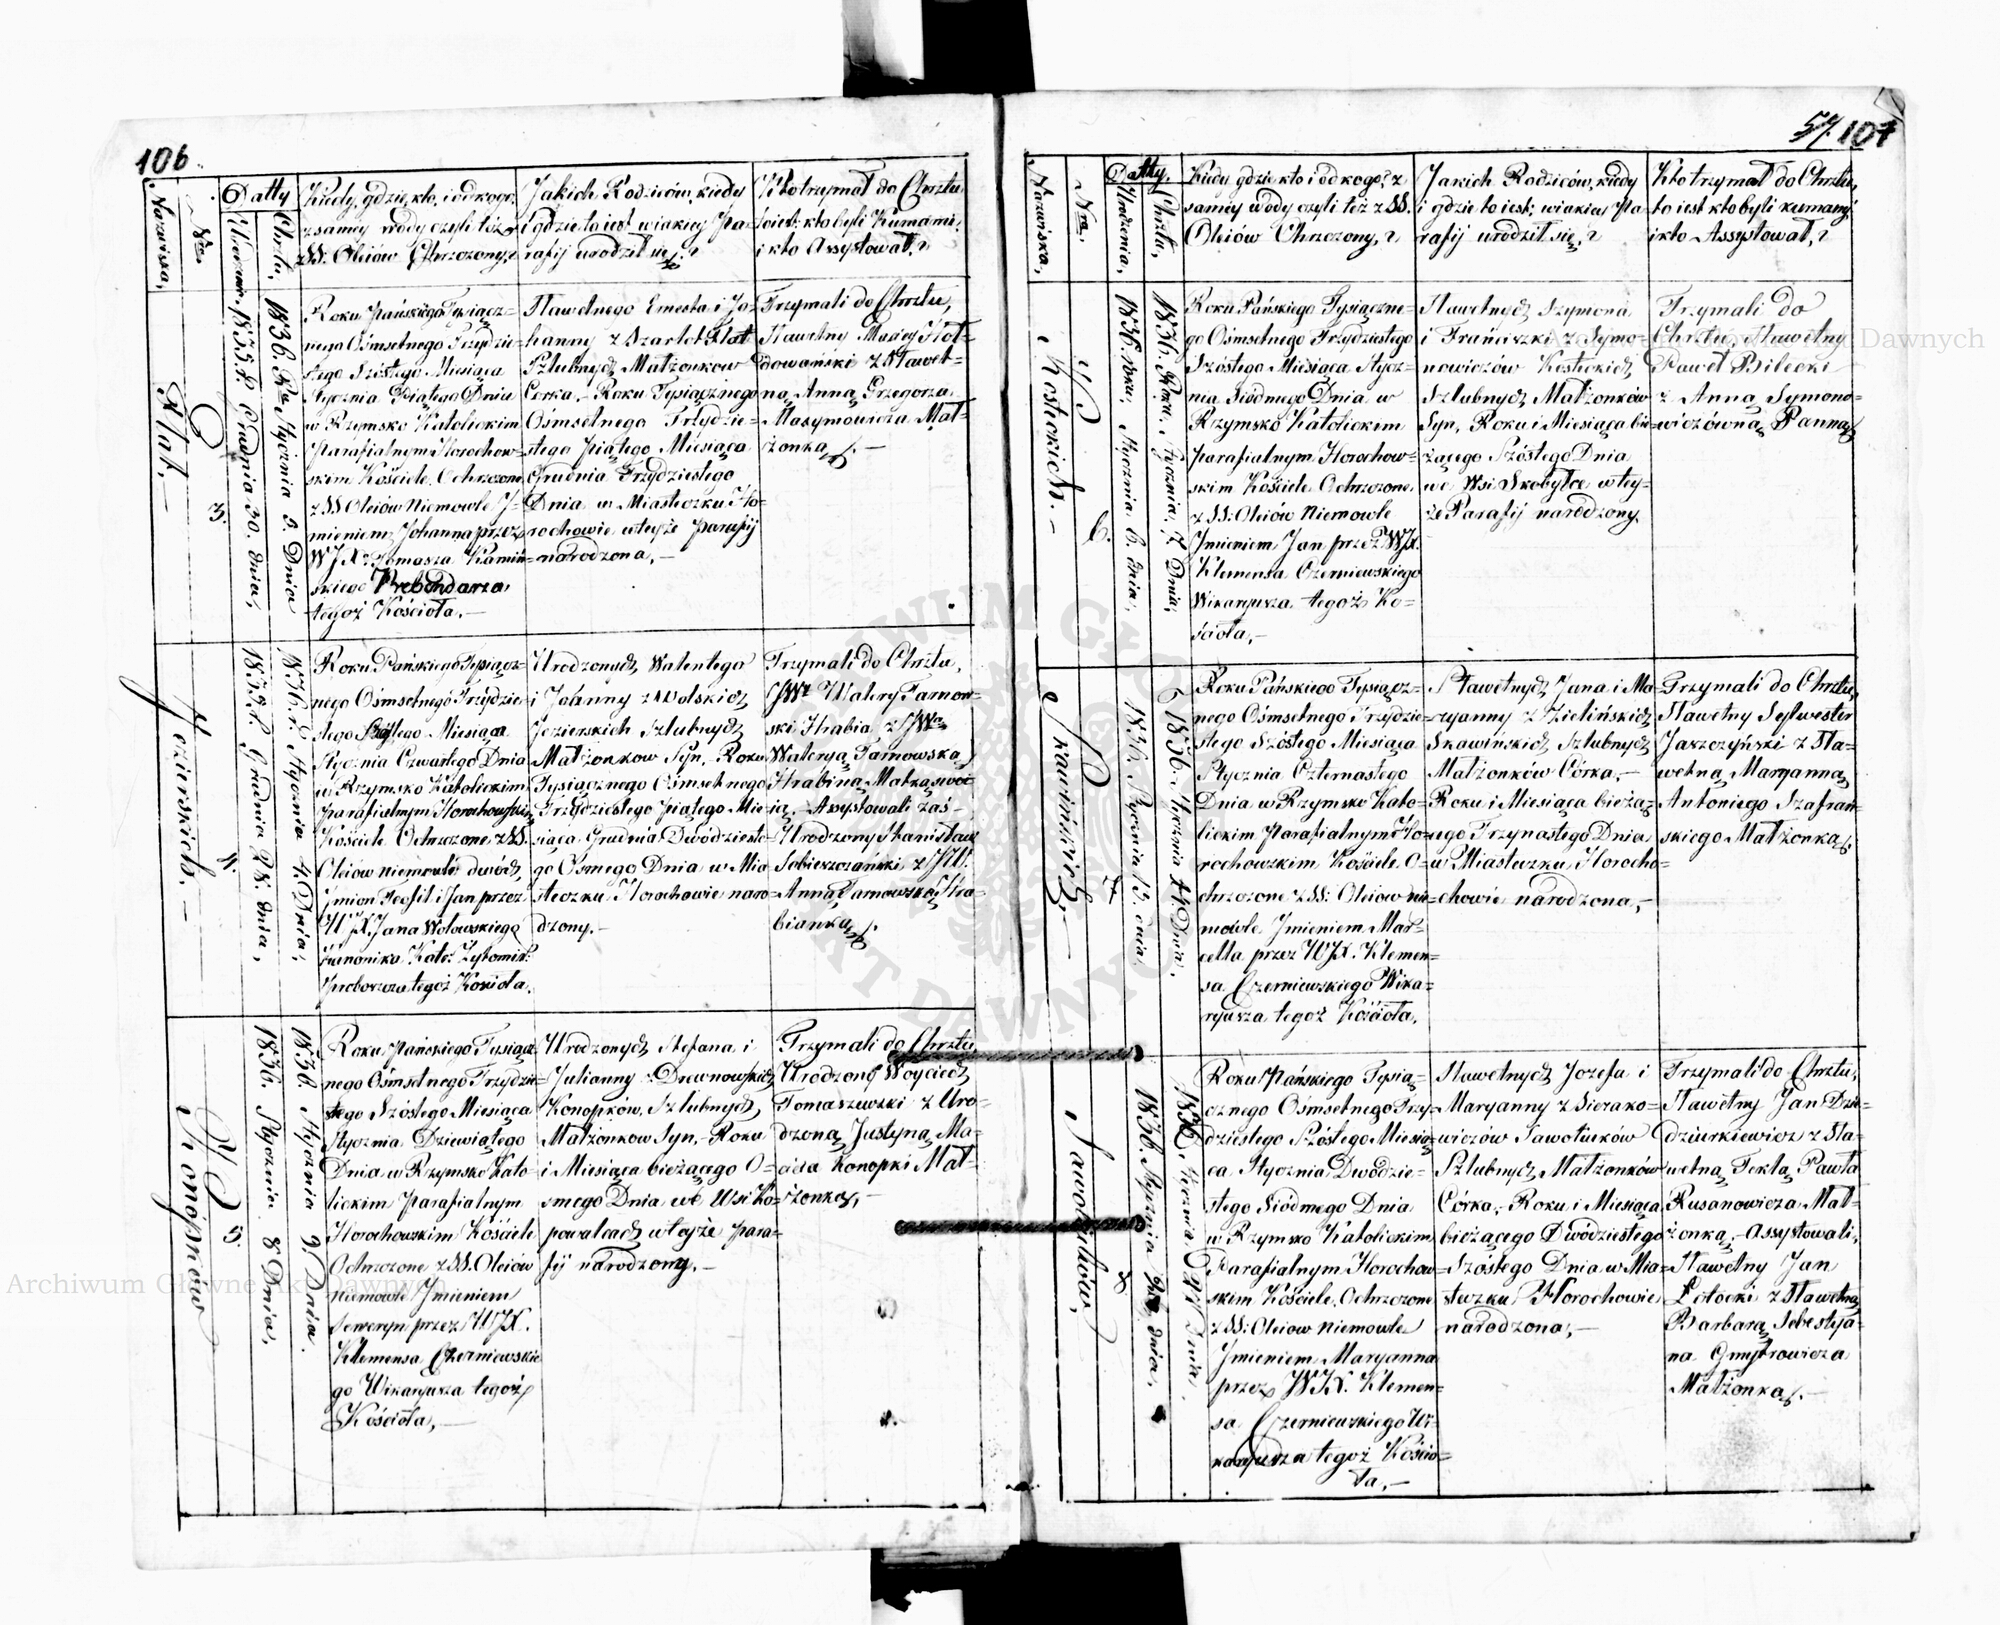 106.
Nazwiska,
Nra.
Datty
Urodzenia,
Chrztu,
Kiedy, gdzie, kto, i od kogo,
z samey wody czyli też z
SS. Oleiów Chrzczony,?
Jakich Rodziców, kiedy
i gdzie to iest w iakiey Pa-
rafij urodził się,?
Kto trzymał do Chrztu
to iest: kto byli Kumami,
i kto Assystował,?
Klat,—
3.
1835. r. Grudnia 30. dnia,
1836. Rku Stycznia 5. Dnia
Roku Pańskiego Tysiącz-
nego Ośmsetnego Trzydzie-
stego Szóstego Miesiąca
Stycznia Piątego Dnia
w Rzymsko Katolickim
Parafialnym Horochow-
skim Kościele Ochrzczone
z SS Oleiów Niemowle J-
mieniem Johanna przez
WJX. Tomasza Kamiń-
skiego Prebendarza
tegoż Kościoła,—
Sławetnego Ernesta i Jo-
hanny z Szarlot Klat
Szlubnych Małżonkow
Corka,- Roku Tysiącznego
Ośmsetnego Trzydzie-
stego piątego Miesiąca
Grudnia Trzydziestego
Dnia w Miasteczku Ho-
rochowie wteyże Parafij
narodzona,—
Trzymali do Chrztu,
Sławetny Maciey Koł-
dowański z Sławet-
ną Anną Grzegorza
Maxymowicza Mał-
żonką,—
Jezierskich.—
4.
1835. r. Grudnia 28. dnia,
1836. r. Stycznia 4. Dnia,
Roku Pańskiego Tysiącz-
nego Ośmsetnego Trzydzie-
stego Szóstego Miesiąca
Stycznia Czwartego Dnia
w Rzymsko Katolickim
parafialnym Horochowskim
Kościele Ochrzczone z SS.
Oleiow niemowle dwóch
Jmion Teofil i Jan przez
WJX. Jana Wołowskiego
Kanonika Kate: Żytomir:
Proboszcza tegoż Kościoła.
Urodzonych Walentego
i Johanny z Wolskich
Jezierskich Szlubnych
Małżonkow Syn,- Roku
Tysiącznego Ośmsetnego
Trzydziestego piątego Mie-
siąca Grudnia Dwódziesto-
go Osmego Dnia w Mia-
steczku Horochowie naro-
dzony.—
Trzymali do Chrztu,
JWł Walery Tarnow-
ski Hrabia z JWną
Waleryą Tarnowską
Hrabiną Matką swo-
ią,- Assystowali zaś-
Urodzony Stanisław
Sobieszczański z JW.
Anną Tarnowską Hra-
bianką.
Konopków
5.
1836. Stycznia 8 Dnia,
1836. Stycznia 9. Dnia.
Roku Pańskiego Tysiącz-
nego Ośmsetnego Trzydzie-
stego Szóstego Miesiąca
Stycznia Dziewiątego
Dnia w Rzymsko Kato-
lickim Parafialnym
Horochowskim Kościele
Ochrzczone z SS. Oleiów
niemowle Jmieniem
Seweryn przez WJX.
Klemensa Czerniewskie-
go Wikaryusza tegoż
Kościoła,—
Urodzonych Stefana i
Julianny z Drewnowskich
Konopków, Szlubnych,
Małżonkow Syn,- Roku
i Miesiąca bieżącego O-
smego Dnia we Wsi Ko-
powalcach w teyże Para-
fij narodzony,—
Trzymali do Chrztu
Urodzony Woyciech
Tomaszewski z Uro-
dzoną Justyną Ma-
cieia Konopki Mał-
żonką,—
54. 107
Nazwiska,
Nra.
Datty,
Urodzenia,
Chrztu,
Kiedy gdzie kto i od kogo,? z
samey wody czyli też z SS.
Oleiów Chrzczony,?
Jakich Rodziców, kiedy
i gdzie to iest; w iakiey Pa-
rafij urodził się,?
Kto trzymał do Chrztu,
to iest kto byli kumamy
i kto Assystował,?
Kosteckich.—
6.
1836. roku. Stycznia 6. dnia,
1836. Roku. Stycznia, 7. Dnia,
Roku Pańskiego Tysiączne-
go Ośmsetnego Trzydziestego
Szóstego Miesiąca Stycz-
nia Siódmego Dnia w
Rzymsko Katolickim
parafialnym Horochow-
skim Kościele Ochrzczone
z SS: Oleiów Niemowle
Jmieniem Jan przez WJX.
Klemensa Czerniewskiego
Wikaryusza tegoż Ko-
ścioła,—
Sławetnych Szymona
i Franciszki z Symo-
nowiczów Kosteckich
Szlubnych Małżonków
Syn, Roku i Miesiąca bie-
żącego Szóstego Dnia
we Wsi Skobyłce w tey-
że Parafij narodzony.
Trzymali do
Chrztu, Sławetny
Paweł Bilecki
z Anną Symono-
wiczówną Panną
Skawińskich,—
7
1836. Stycznia 13. dnia
1836. Stycznia 14 Dnia,
Roku Pańskiego Tysiącz-
nego Ośmsetnego Trzydzie-
stego Szóstego Miesiąca
Stycznia Czternastego
Dnia w Rzymsko Kato-
lickim Parafialnym Ho-
rochowskim Kościele O-
chrzczone z SS: Oleiow nie-
mowle Jmieniem Mar-
cella przez WJX. Klemen-
sa Czerniewskiego Wika-
ryusza tegoż Kościoła,
Sławetnych Jana i Ma-
ryanny z Zielińskich
Skawińskich Szlubnych
Małżonków Córka,—
Roku i Miesiąca bieżą-
cego Trzynastego Dnia
w Miasteczku Horocho-
chowie narodzona,—
Trzymali do Chrztu,
Sławetny Sylwester
Jaszczyński z Sła-
wetną Maryanną
Antoniego Szafrań-
skiego Małżonką,
Sawoluków,
8
1836. Stycznia 26 dnia,
1836, Stycznia 27 Dnia.
Roku Pańskiego Tysią-
cznego Ośmsetnego Trzy-
dziestego Szóstego Miesią-
ca Stycznia Dwódzie-
stego Siódmego Dnia
w Rzymsko Katolickim
Parafialnym Horochow-
skim Kościele, Ochrzczone
z SS: Oleiow Niemowle
Jmieniem Maryanna
przez WJX. Klemen-
sa Czerniewskiego Wi-
karyusza tegoż Kościo-
ła,—
Sławetnych Jozefa i
Maryanny z Sierako-
wiczów Sawoluków
Szlubnych Małżonków
Córka,- Roku i Miesiąca
bieżącego Dwódziestego
Szóstego Dnia w Mia-
steczku Horochowie
narodzona,—
Trzymali do Chrztu,
Sławetny Jan Dzie-
dziurkiewicz z Sła-
wetną Teklą Pawła
Rusanowicza Mał-
żonką,- Assystowali,
Sławetny Jan
Łotocki z Sławetną
Barbarą Sebestyja-
na Gmytrowicza
Małżonką,—
Archiwum Główne Akt Dawnych